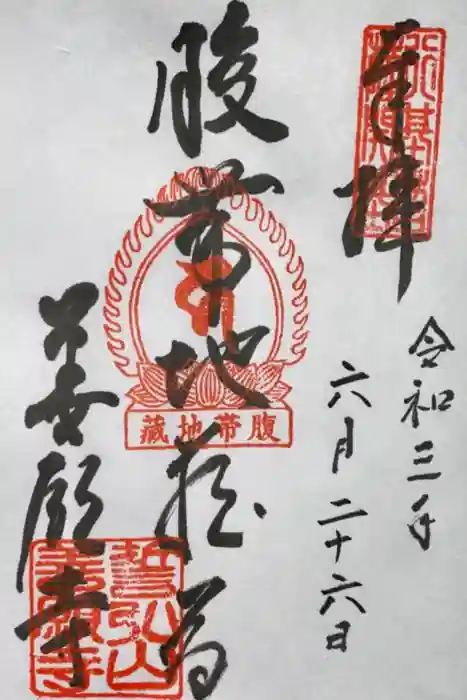 奉拝
令和三年
六月二十六日
腹帯地蔵尊
腹帯地蔵
善願寺
誓弘山
善願寺